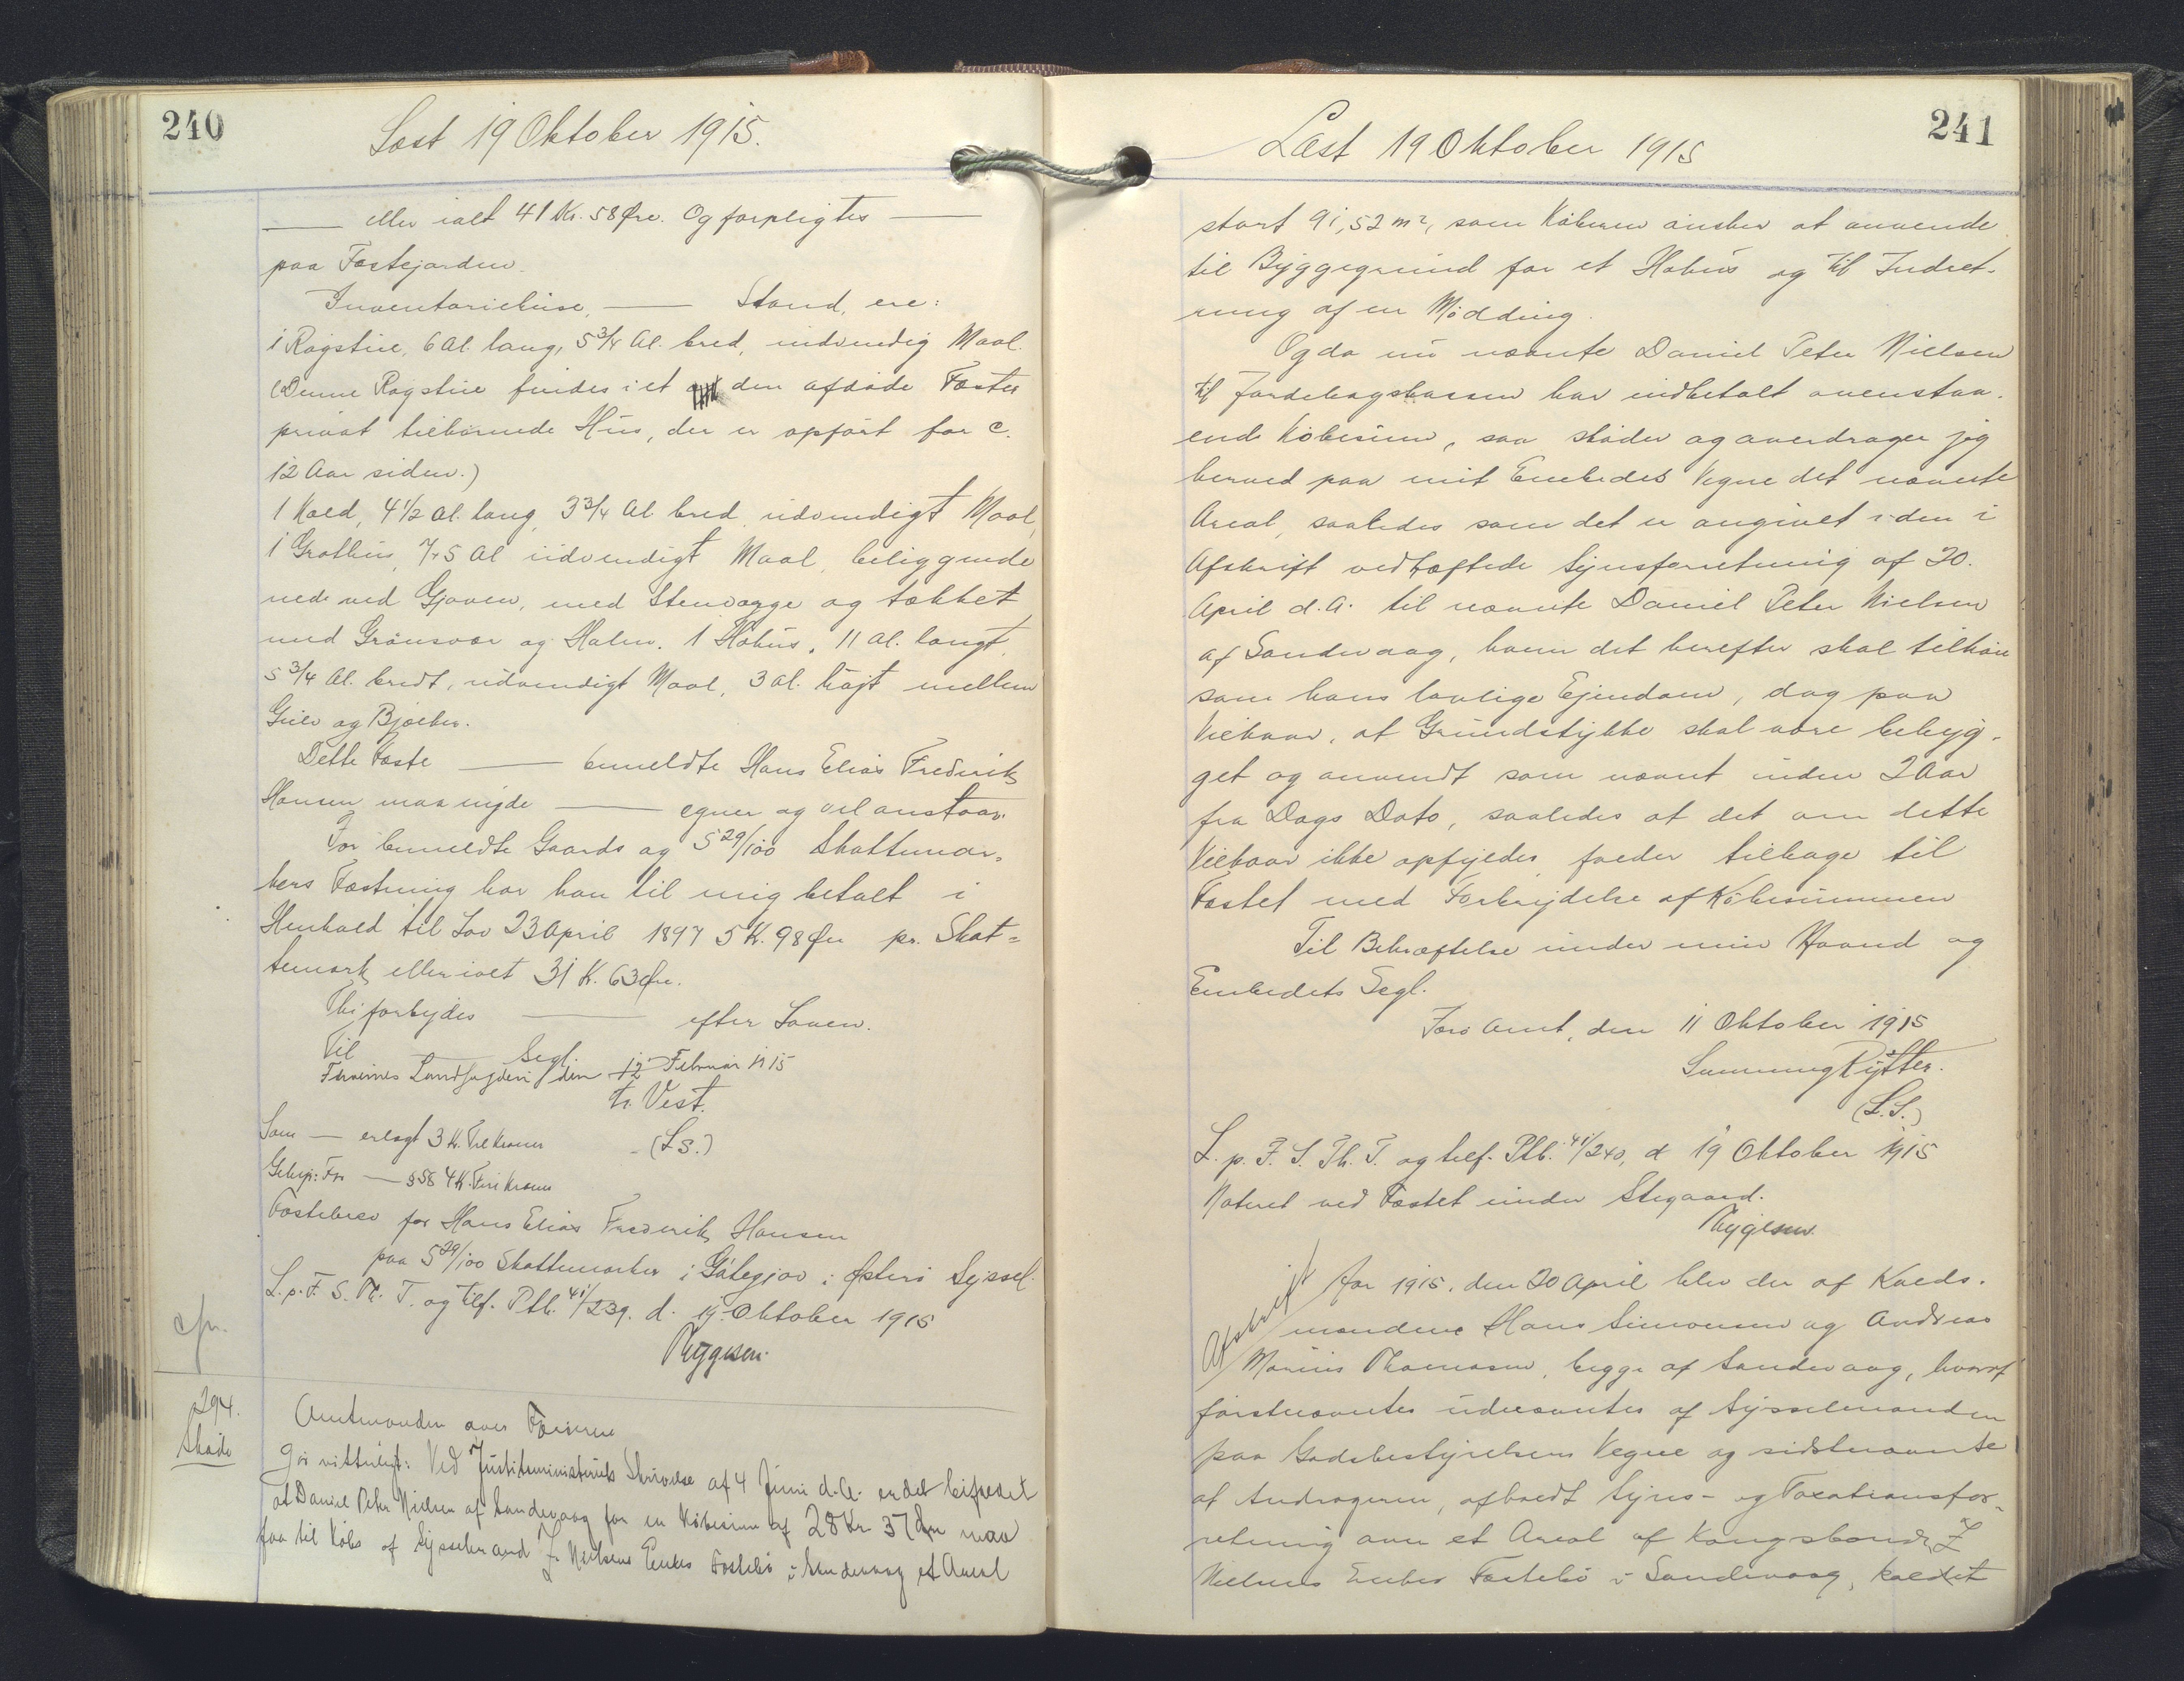 240
Læst 19 Oktober 1915.
—— eller ialt 41 Kr. 58 Øre. Og forpligtes ——
paa Fæstejorden.
Inventariehuse, —— Stand, ere:
1 Rogstue, 6 Al. lang, 5 3/4 Al. bred, indvendig Maal.
(Denne Rogstue findes i et den afdøde Fæster
privat tilhørende Hus, der er opført for c.
12 Aar siden.)
1 Hæld, 4 1/2 Al. lang, 3 3/4 Al. bred udvendigt Maal,
1 Grothus, 7x5 Al udvendigt Maal, beliggende
nede ved Gjoven, med Stenvægge og tækket
med Grønsvær og Halm. 1 Høhus, 11 Al. langt,
5 3/4 Al. bredt, udvendigt Maal, 3 Al. højt mellem
Gulv og Bjælker.
Dette Fæste —— bemeldte Hans Elias Frederik
Hansen maa nyde —— egner og vel anstaar.
For bemeldte Gaards og 5 29/100 Skattemar-
kers Fæstning har han til mig betalt i
Henhold til Lov 23 April 1897 5 Kr. 98 Øre pr. Skat=
temark eller ialt 31 Kr. 63 Øre.
Thi forbydes —— efter Loven.
Til —— Segl.
Færøernes Landfogderi, den 12 Februar 1915
Tr. Vest.
(L.S.)
Som — erlagt 3 Kr. Tre Kroner
Gebyr: Fr — § 58 4 Kr. Fire Kroner
Fæstebrev for Hans Elias Frederik Hansen
paa 5 29/100 Skattemarker i Gøtegjov i Østerø Syssel.
L. p. F. S. Th. T. og tilf. Ptb. 41/239. d. 19 Oktober 1915
Thygesen.
cfr.
294.
Skøde
Amtmanden over Færøerne
Gør vitterligt: Ved Justitsministeriets Skrivelse af 4 Juni d.A. er det bifaldet
at Daniel Peter Nielsen af Sandevaag for en Købesum af 28 Kr 37 Øre maa
faa til Købs af Sysselmand Z. Nielsens Enkes Fæstebø i Sandevaag et Areal
241
Læst 19 Oktober 1915
stort 91,52 m², som Køberen ønsker at anvende
til Byggegrund for et Høhus og til Indret-
ning af en Mødding.
Og da nu nævnte Daniel Peter Nielsen
til Jordebogskassen har indbetalt ovenstaa-
ende Købesum, saa skøder og overdrager jeg
herved paa mit Embedes Vegne det nævnte
Areal, saaledes som det er angivet i den i
Afskrift vedhæftede Synsforretning af 20.
April d.A. til nævnte Daniel Peter Nielsen
af Sandevaag, hvem det herefter skal tilhøre
som hans lovlige Ejendom, dog paa
Vilkaar, at Grundstykke skal være bebyg-
get og anvendt som nævnt inden 2 Aar
fra Dags Dato, saaledes at det om dette
Vilkaar ikke opfyldes falder tilbage til
Fæstet med Forbrydelse af Købesummen
Til Bekræftelse under min Haand og
Embedets Segl.
Færø Amt, den 11 Oktober 1915
Svenning Rytter.
(L.S.)
L. p. F. S. Th. T. og tilf. Ptb. 41/240, d 19 Oktober 1915
Noteret ved Fæstet under Stegaard.
Thygesen
Afskrift
Aar 1915, den 20 April blev der af Kvæds-
mændene Hans Simonsen og Andreas
Marius Thomasen, begge af Sandevaag, hvoraf
førstnævntes udnævntes af Sysselmanden
paa Godsbestyrelsens Vegne og sidstnævnte
af Andrageren, afholdt Syns- og Taxationsfor-
retning over et Areal af Kongsbonde Z
Nielsens Enkes Fæstebø i Sandevaag, kaldet